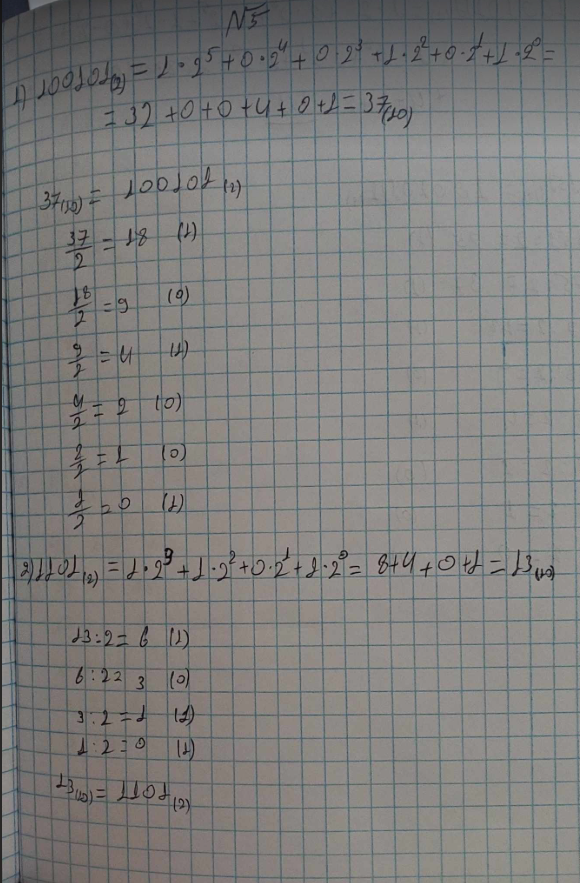 №5
1) 100101(2) = 1·2⁵ + 0·2⁴ + 0·2³ + 1·2² + 0·2¹ + 1·2⁰ =
= 32 + 0 + 0 + 4 + 0 + 1 = 37(10)
37(10) = 100101(2)
37/2 = 18 (1)
18/2 = 9 (0)
9/2 = 4 (1)
4/2 = 2 (0)
2/2 = 1 (0)
1/2 = 0 (1)
2) 1101(2) = 1·2³ + 1·2² + 0·2¹ + 1·2⁰ = 8 + 4 + 0 + 1 = 13(10)
13 : 2 = 6 (1)
6 : 2 = 3 (0)
3 : 2 = 1 (1)
1 : 2 = 0 (1)
13(10) = 1101(2)